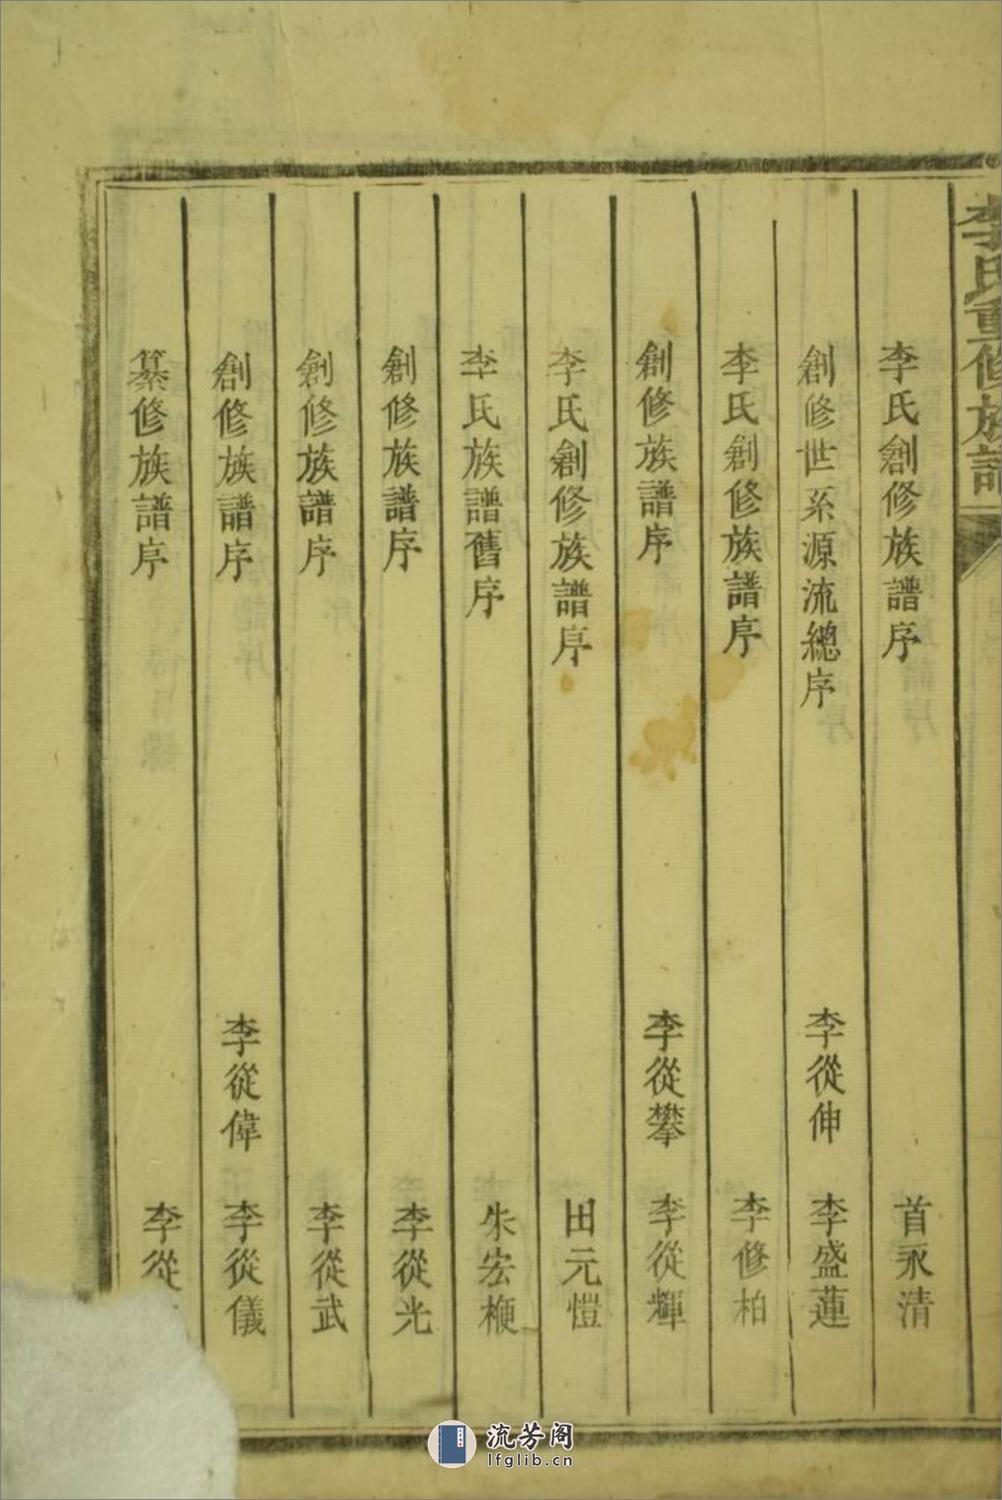 李氏重修族譜
李氏創修族譜序 首永清
創修世系源流總序 李從伸 李盛蓮
李氏創修族譜序 李修柏
創修族譜序 李從攀 李從輝
李氏創修族譜序 田元愷
李氏族譜舊序 朱宏楩
創修族譜序 李從光
創修族譜序 李從武
創修族譜序 李從偉 李從儀
纂修族譜序 李從
流芳阁
lfglib.cn